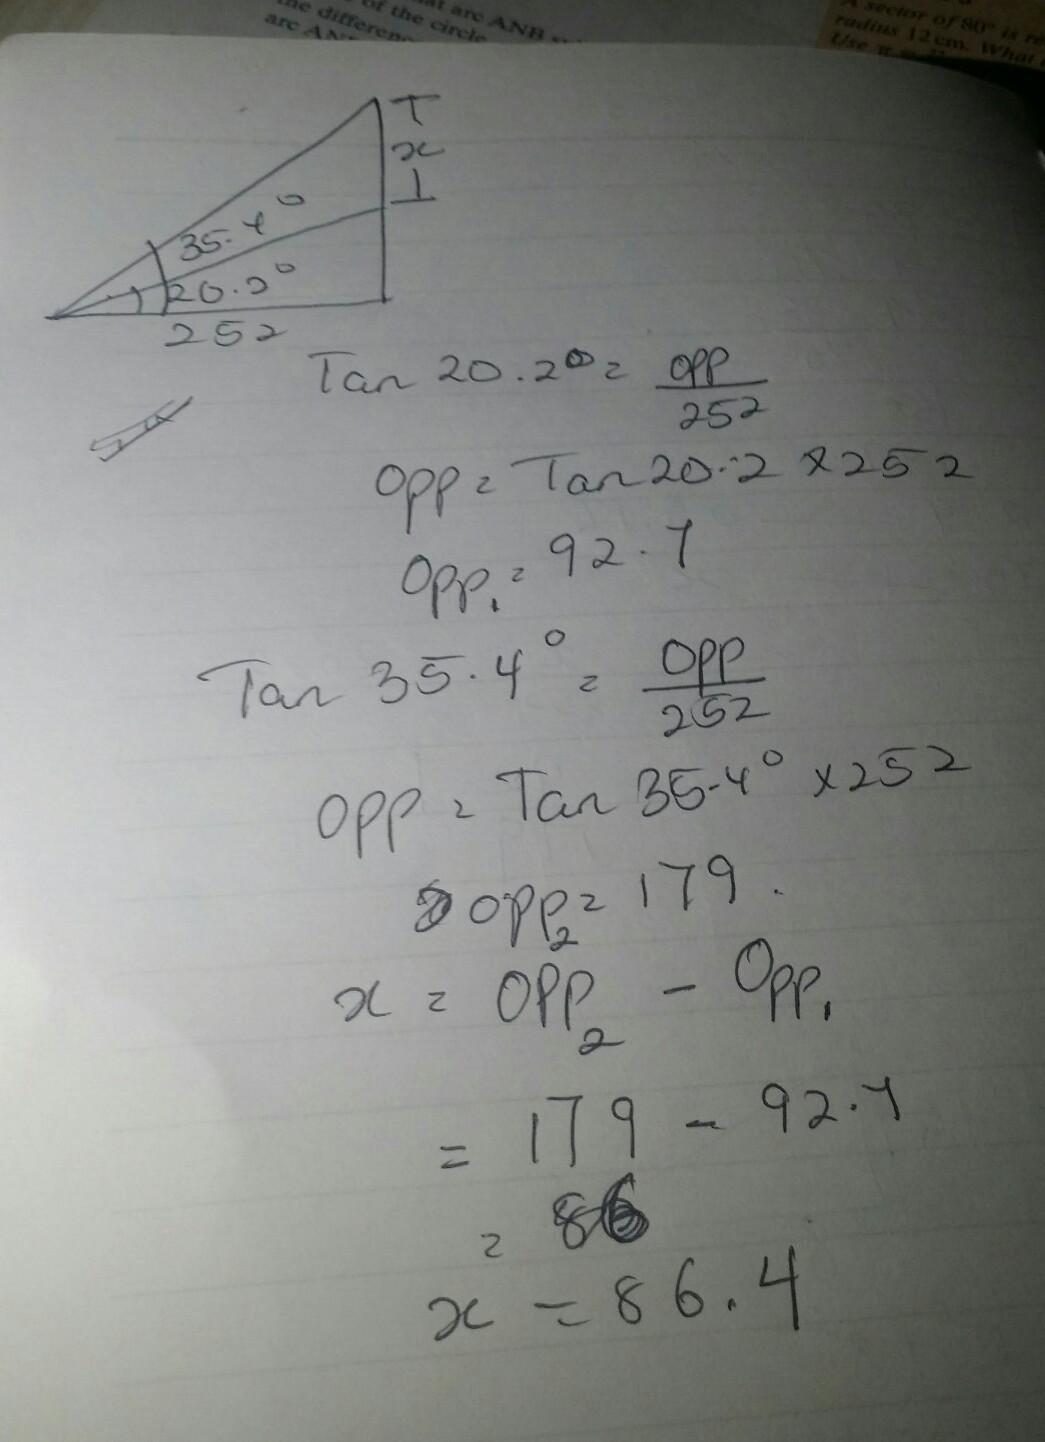 at arc ANB
of the circle
the differen
arc AN
A sector of 80° is re
radius 12 cm. What
Use π
T
x
35.4°
20.2°
252
Tan 20.2° = opp/252
opp = Tan 20.2 × 252
Opp₁ = 92.7
Tan 35.4° = opp/252
opp = Tan 35.4° × 252
opp₂ = 179.
x = opp₂ - Opp₁
= 179 - 92.7
= 86
x = 86.4